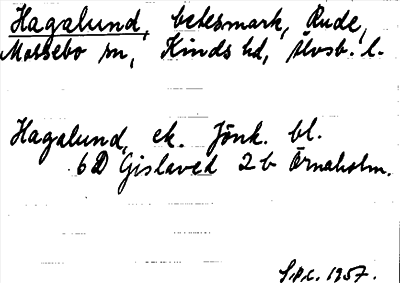 Hagalund, betesmark, Rude,
Mossebo sn, Kinds hd, Älvsb. l.
Hagalund, ek. Jönk. bl.
6D Gislaved 2b Örnaholm.
1957.